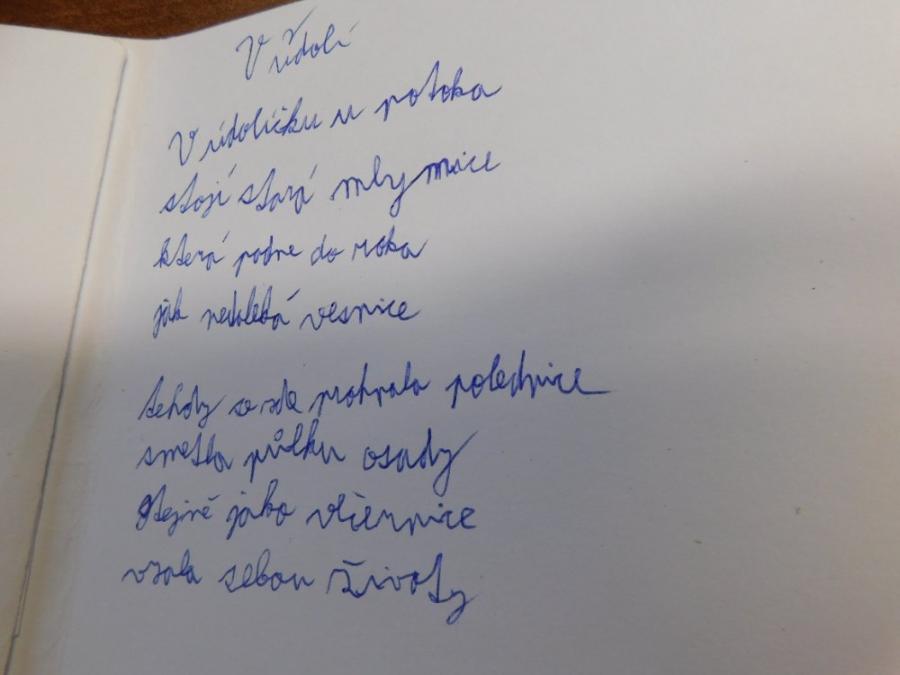 V údolí
V údolíčku u potoka
stojí stará mlymice
která padne do roka
jak nedaleká vesnice
tehdy se zde prohnala polednice
smetla půlku osady
stejně jako včernice
vzala sebou životy